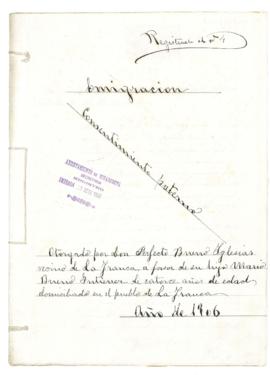 Registrado al nº 4
Emigracion
Consentimiento Paterno
AYUNTAMIENTO DE RIBADEDEVA
Otorgado por Don Perfecto Bueno Yglesias
vecino de La Franca, a favor de su hijo Mario
Bueno Gutierrez de catorce años de edad,
domiciliado en el pueblo de La Franca.
Año de 1906